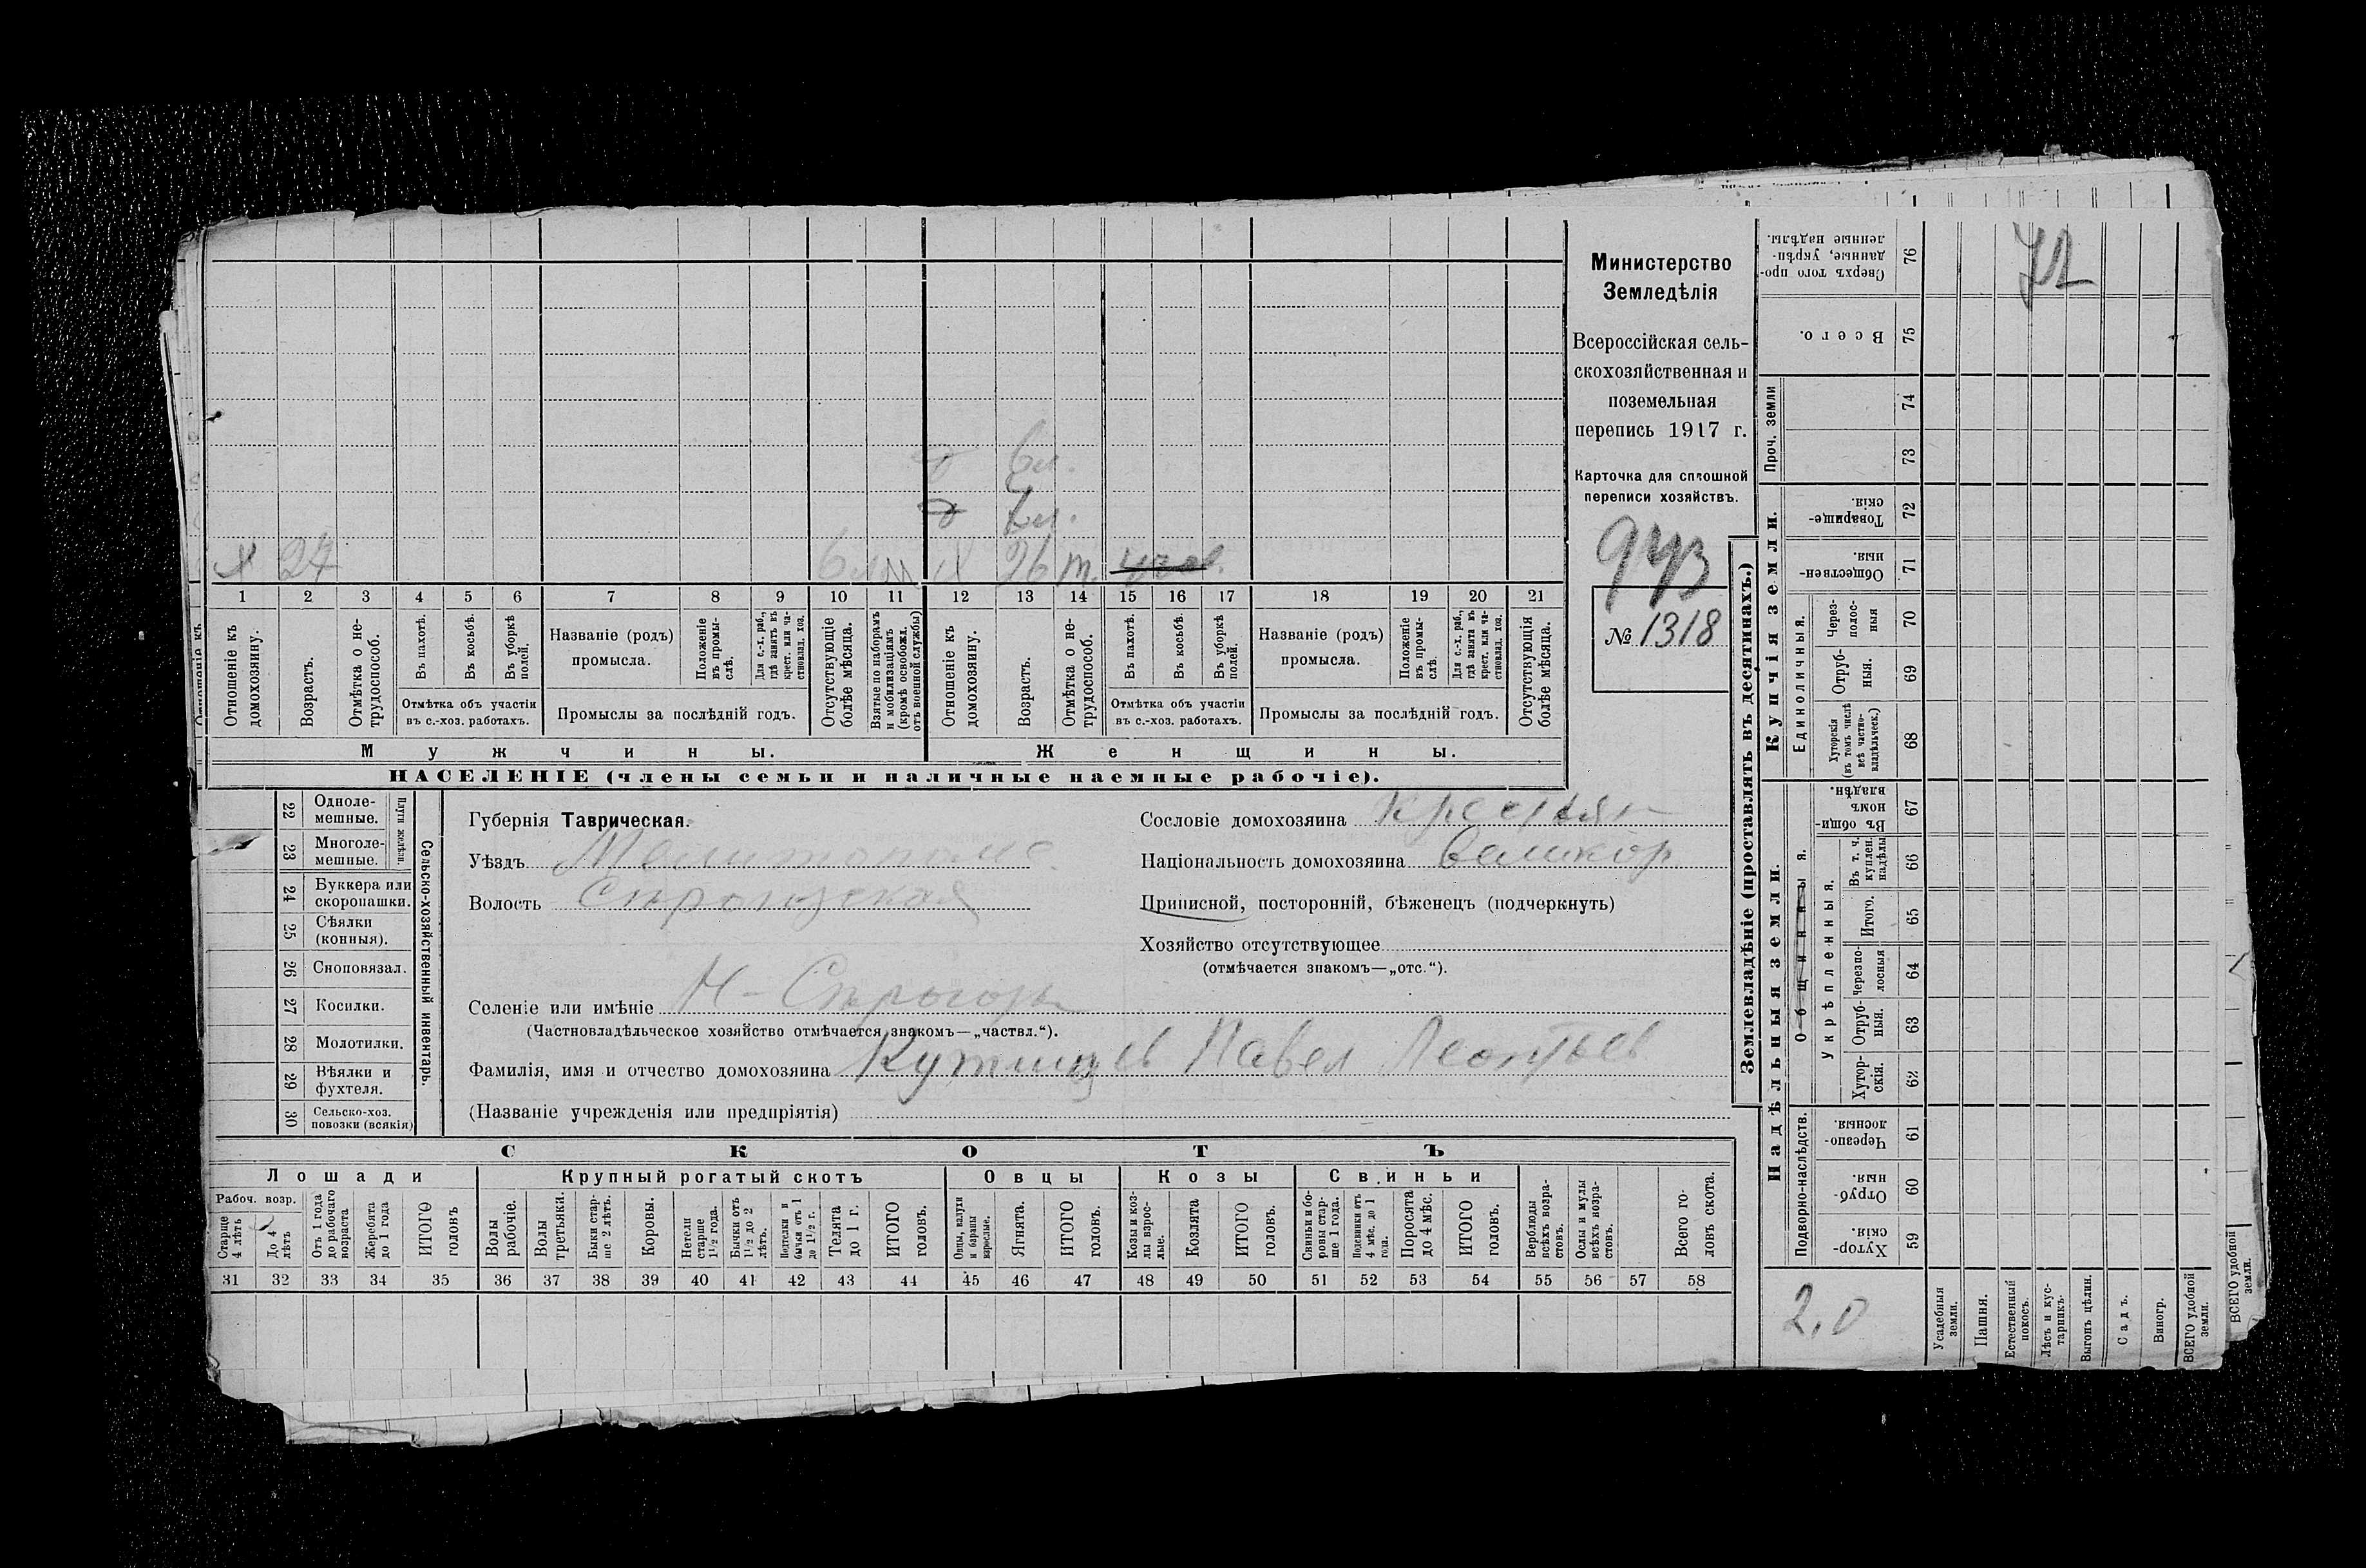 Министерство
Земледѣлія
Всероссійская сель-
скохозяйственная и
поземельная
перепись 1917 г.
Карточка для сплошной
переписи хозяйствъ.
943
№ 1318
6 м.
х 27 х 26 т.
1 2 3 4 5 6 7 8 9 10 11 12 13 14 15 16 17 18 19 20 21
Отношеніе къ домохозяину.
Возрастъ.
Отмѣтка о не-трудоспособ.
Въ пахотѣ.
Въ косьбѣ.
Въ уборкѣ полей.
Отмѣтка объ участіи
въ с.-хоз. работахъ.
Названіе (родъ)
промысла.
Положеніе въ промы-слѣ.
Для с.-х. раб., гдѣ занятъ въ крест. или ча-стновлад. хоз.
Промыслы за послѣдній годъ.
Отсутствующіе болѣе мѣсяца.
Взятые по наборамъ и мобилизаціямъ (кромѣ освобожд. отъ военной службы)
Отношеніе къ домохозяину.
Возрастъ.
Отмѣтка о не-трудоспособ.
Въ пахотѣ.
Въ косьбѣ.
Въ уборкѣ полей.
Отмѣтка объ участіи
въ с.-хоз. работахъ.
Названіе (родъ)
промысла.
Положеніе въ промы-слѣ.
Для с.-х. раб., гдѣ занята въ крест. или ча-стновлад. хоз.
Промыслы за послѣдній годъ.
Отсутствующія болѣе мѣсяца.
Мужчины. Женщины.
НАСЕЛЕНІЕ (члены семьи и наличные наемные рабочіе).
22 Одноле-мешные.
23 Многоле-мешные.
Плуги желѣзн.
24 Буккера или скоропашки.
25 Сѣялки (конныя).
26 Сноповязал.
27 Косилки.
28 Молотилки.
29 Вѣялки и фухтеля.
30 Сельско-хоз. повозки (всякія)
Сельско-хозяйственный инвентарь.
Губернія Таврическая.
Уѣздъ
Волость
Селеніе или имѣніе
(Частновладѣльческое хозяйство отмѣчается знакомъ—„частвл.“).
Фамилія, имя и отчество домохозяина Павел Леонтьев
(Названіе учрежденія или предпріятія)
Сословіе домохозяина крестьян
Національность домохозяина
Приписной, посторонній, бѣженецъ (подчеркнуть)
Хозяйство отсутствующее
(отмѣчается знакомъ—„отс.“).
СКОТЪ
Лошади Крупный рогатый скотъ Овцы Козы Свиньи
Рабоч. возр.
Старше 4 лѣтъ
До 4 лѣтъ
Отъ 1 года до рабочаго возраста
Жеребята до 1 года
ИТОГО головъ
Волы рабочіе.
Волы третьяки.
Быки стар-ше 2 лѣтъ.
Коровы.
Нетели старше 1½ года.
Бычки отъ 1½ до 2 лѣтъ.
Нетелки и бычки отъ 1 до 1½ г.
Телята до 1 г.
ИТОГО головъ.
Овцы, валухи и бараны взрослые.
Ягнята.
ИТОГО головъ.
Козы и коз-лы взрос-лые.
Козлята
ИТОГО головъ.
Свиньи и бо-ровы стар-ше 1 года.
Подсвинки отъ 4 мѣс. до 1 года.
Поросята до 4 мѣс.
ИТОГО головъ.
Верблюды всѣхъ возра-стовъ.
Ослы и мулы всѣхъ возра-стовъ.
Всего го-ловъ скота.
31 32 33 34 35 36 37 38 39 40 41 42 43 44 45 46 47 48 49 50 51 52 53 54 55 56 57 58
Землевладѣніе (проставлять въ десятинахъ.)
Купчія земли.
Надѣльныя земли.
Проч. земли
Сверхъ того про-данные, укрѣп-ленные надѣлы. 76
Всего. 75
74
73
Товарище-скія. 72
Обществен-ныя. 71
Единоличныя.
Через-полос-ныя 70
Отруб-ныя. 69
Хуторскія (въ томъ числѣ всѣ частно-владѣльческ.) 68
Общинныя.
Въ общи-номъ владѣн. 67
Укрѣпленныя.
Въ т. ч. куплен. надѣлы 66
Итого. 65
Черезпо-лосныя 64
Отруб-ныя. 63
Хутор-скія. 62
Подворно-наслѣдств.
Черезпо-лосныя. 61
Отруб-ныя. 60
Хутор-скія. 59
2,0
Усадебныя земли.
Пашня.
Естественный покосъ.
Лѣсъ и кус-тарникъ.
Выгонъ цѣлин.
Садъ.
Виногр.
ВСЕГО удобной земли.
ВСЕГО удобной земли.